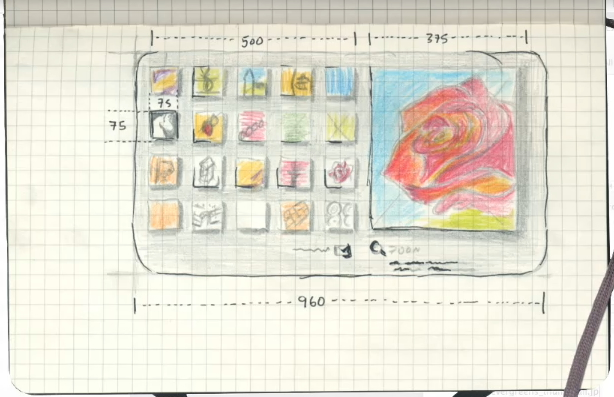 500 375
75
75
ZOOM
960